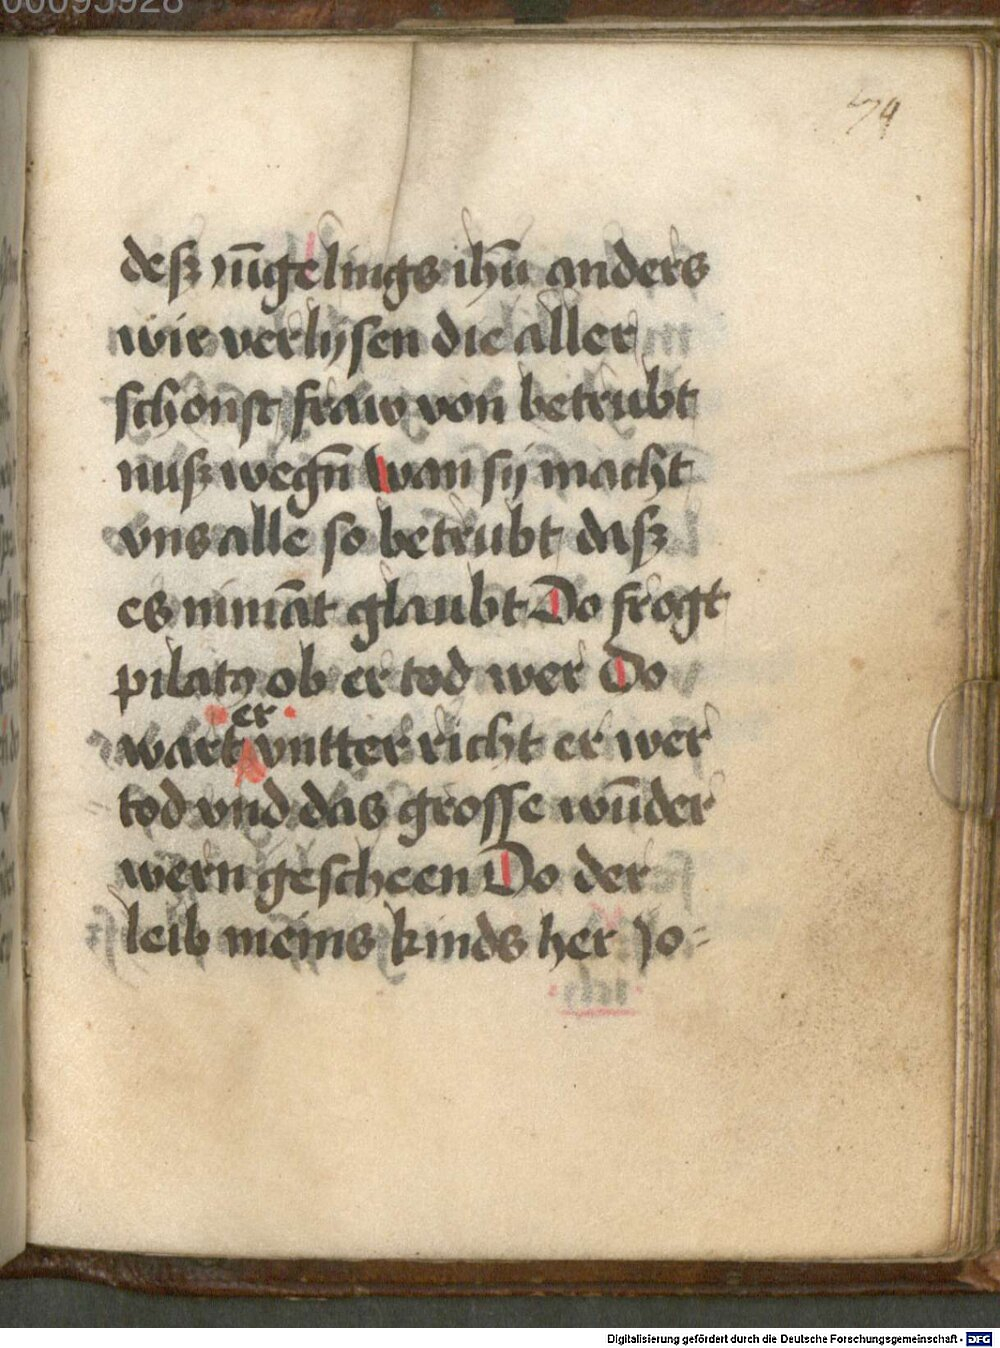 00095928
54
deß yūgelings ihū anders
wir verlysen die aller
schonst fraw von betrubt
nuß wegn̄ wan sy macht
vns alle so betrubt daß
es nimāt glaubt Do frogt
pilatꝰ ob er tod wer Do
er
wart vntterricht er wer
tod vnd das grosse wūder
wern gescheen Do der
leib meins kinds her Jo-
Digitalisierung gefördert durch die Deutsche Forschungsgemeinschaft - DFG